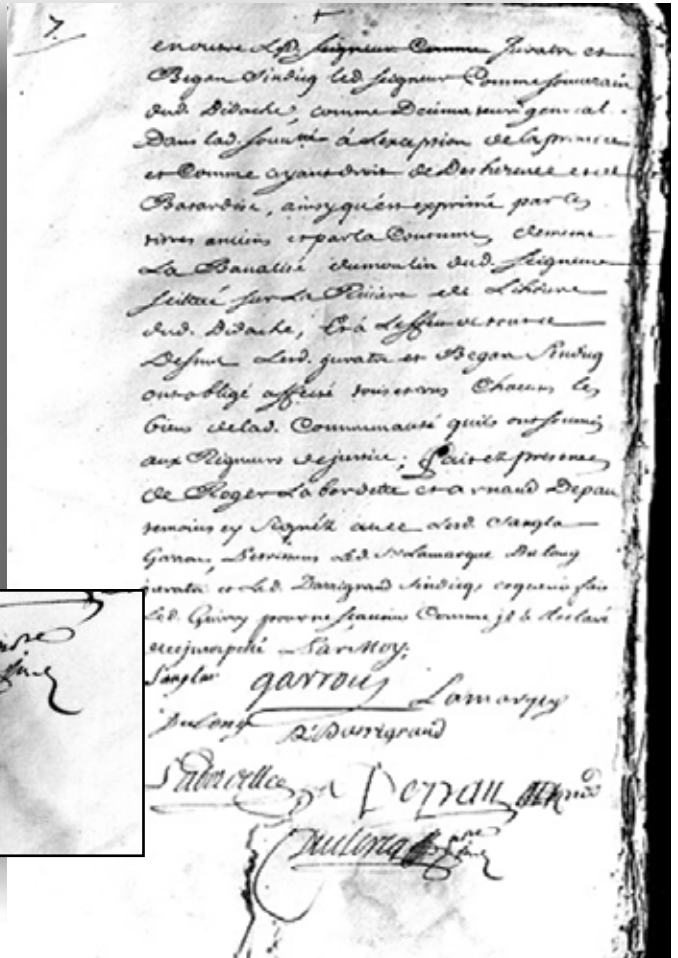 7
en outre Led. Seigneur Comme Jurats et
Began Sindicq led seigneur Comme souverain
dud. Bidache, comme Decimateur general
Dans lad. souvté à Lexception de la
et Comme ayant droit de Desherence et de
Batardise, ainsy qu'en exprimé par les
titres anciens et par la Coutume,
La Banalité dumoulin dud. seigneur
scitué sur La Riviere de Lihoure
dud. Bidache, Et à Leffet de tout ce
Dessus Lesd. jurats et Began Sindicq
ont obligé affecté tous et uns Chacuns les
biens de lad. Communauté quils ont soumis
aux Rigueurs de justice; fait ez presences
de Roger Labordette et arnaud Depau
temoins cy signéz avec Lesd. Sangla
Garrouy, Led. Sr Lamarque Dulong
jurats et Led. Darrigrand sindicqs ce que n'a fait
Led. Guirey pour ne scavoir Comme jl a declaré
Par moy.
Sanglar garrouy Lamarque
Dulong Darrigrand
Labordette Depau
Dulong